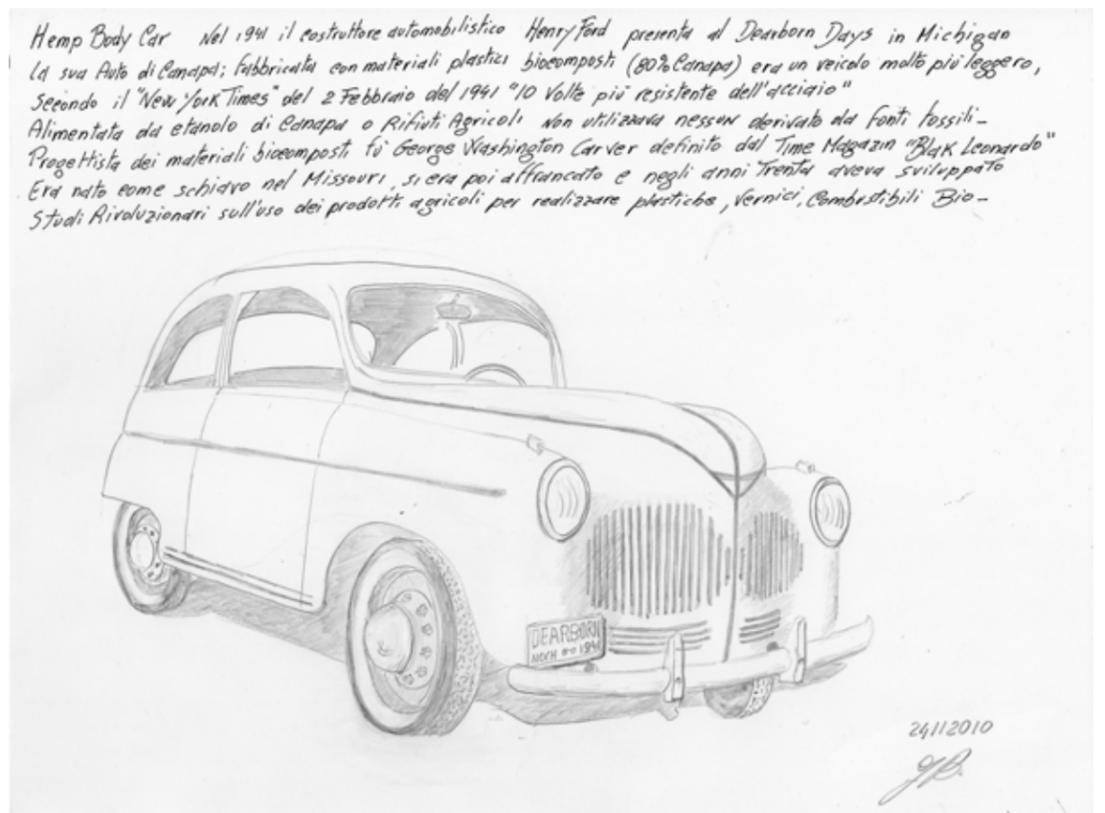 Hemp Body Car Nel 1941 il costruttore automobilistico Henry Ford presenta al Dearborn Days in Michigan
la sua Auto di Canapa; fabbricata con materiali plastici biocomposti (80% Canapa) era un veicolo molto più leggero,
secondo il "New York Times" del 2 Febbraio del 1941 "10 Volte più resistente dell'acciaio"
Alimentata da etanolo di Canapa o Rifiuti Agricoli Non utilizzava nessun derivato da fonti fossili-
Progettista dei materiali biocomposti fù George Washington Carver definito dal Time Magazin "Blak Leonardo"
Era nato come schiavo nel Missouri, si era poi affrancato e negli anni Trenta aveva sviluppato
Studi Rivoluzionari sull'uso dei prodotti agricoli per realizzare plastiche, Vernici, Combustibili Bio-
DEARBORN
1941
24112010